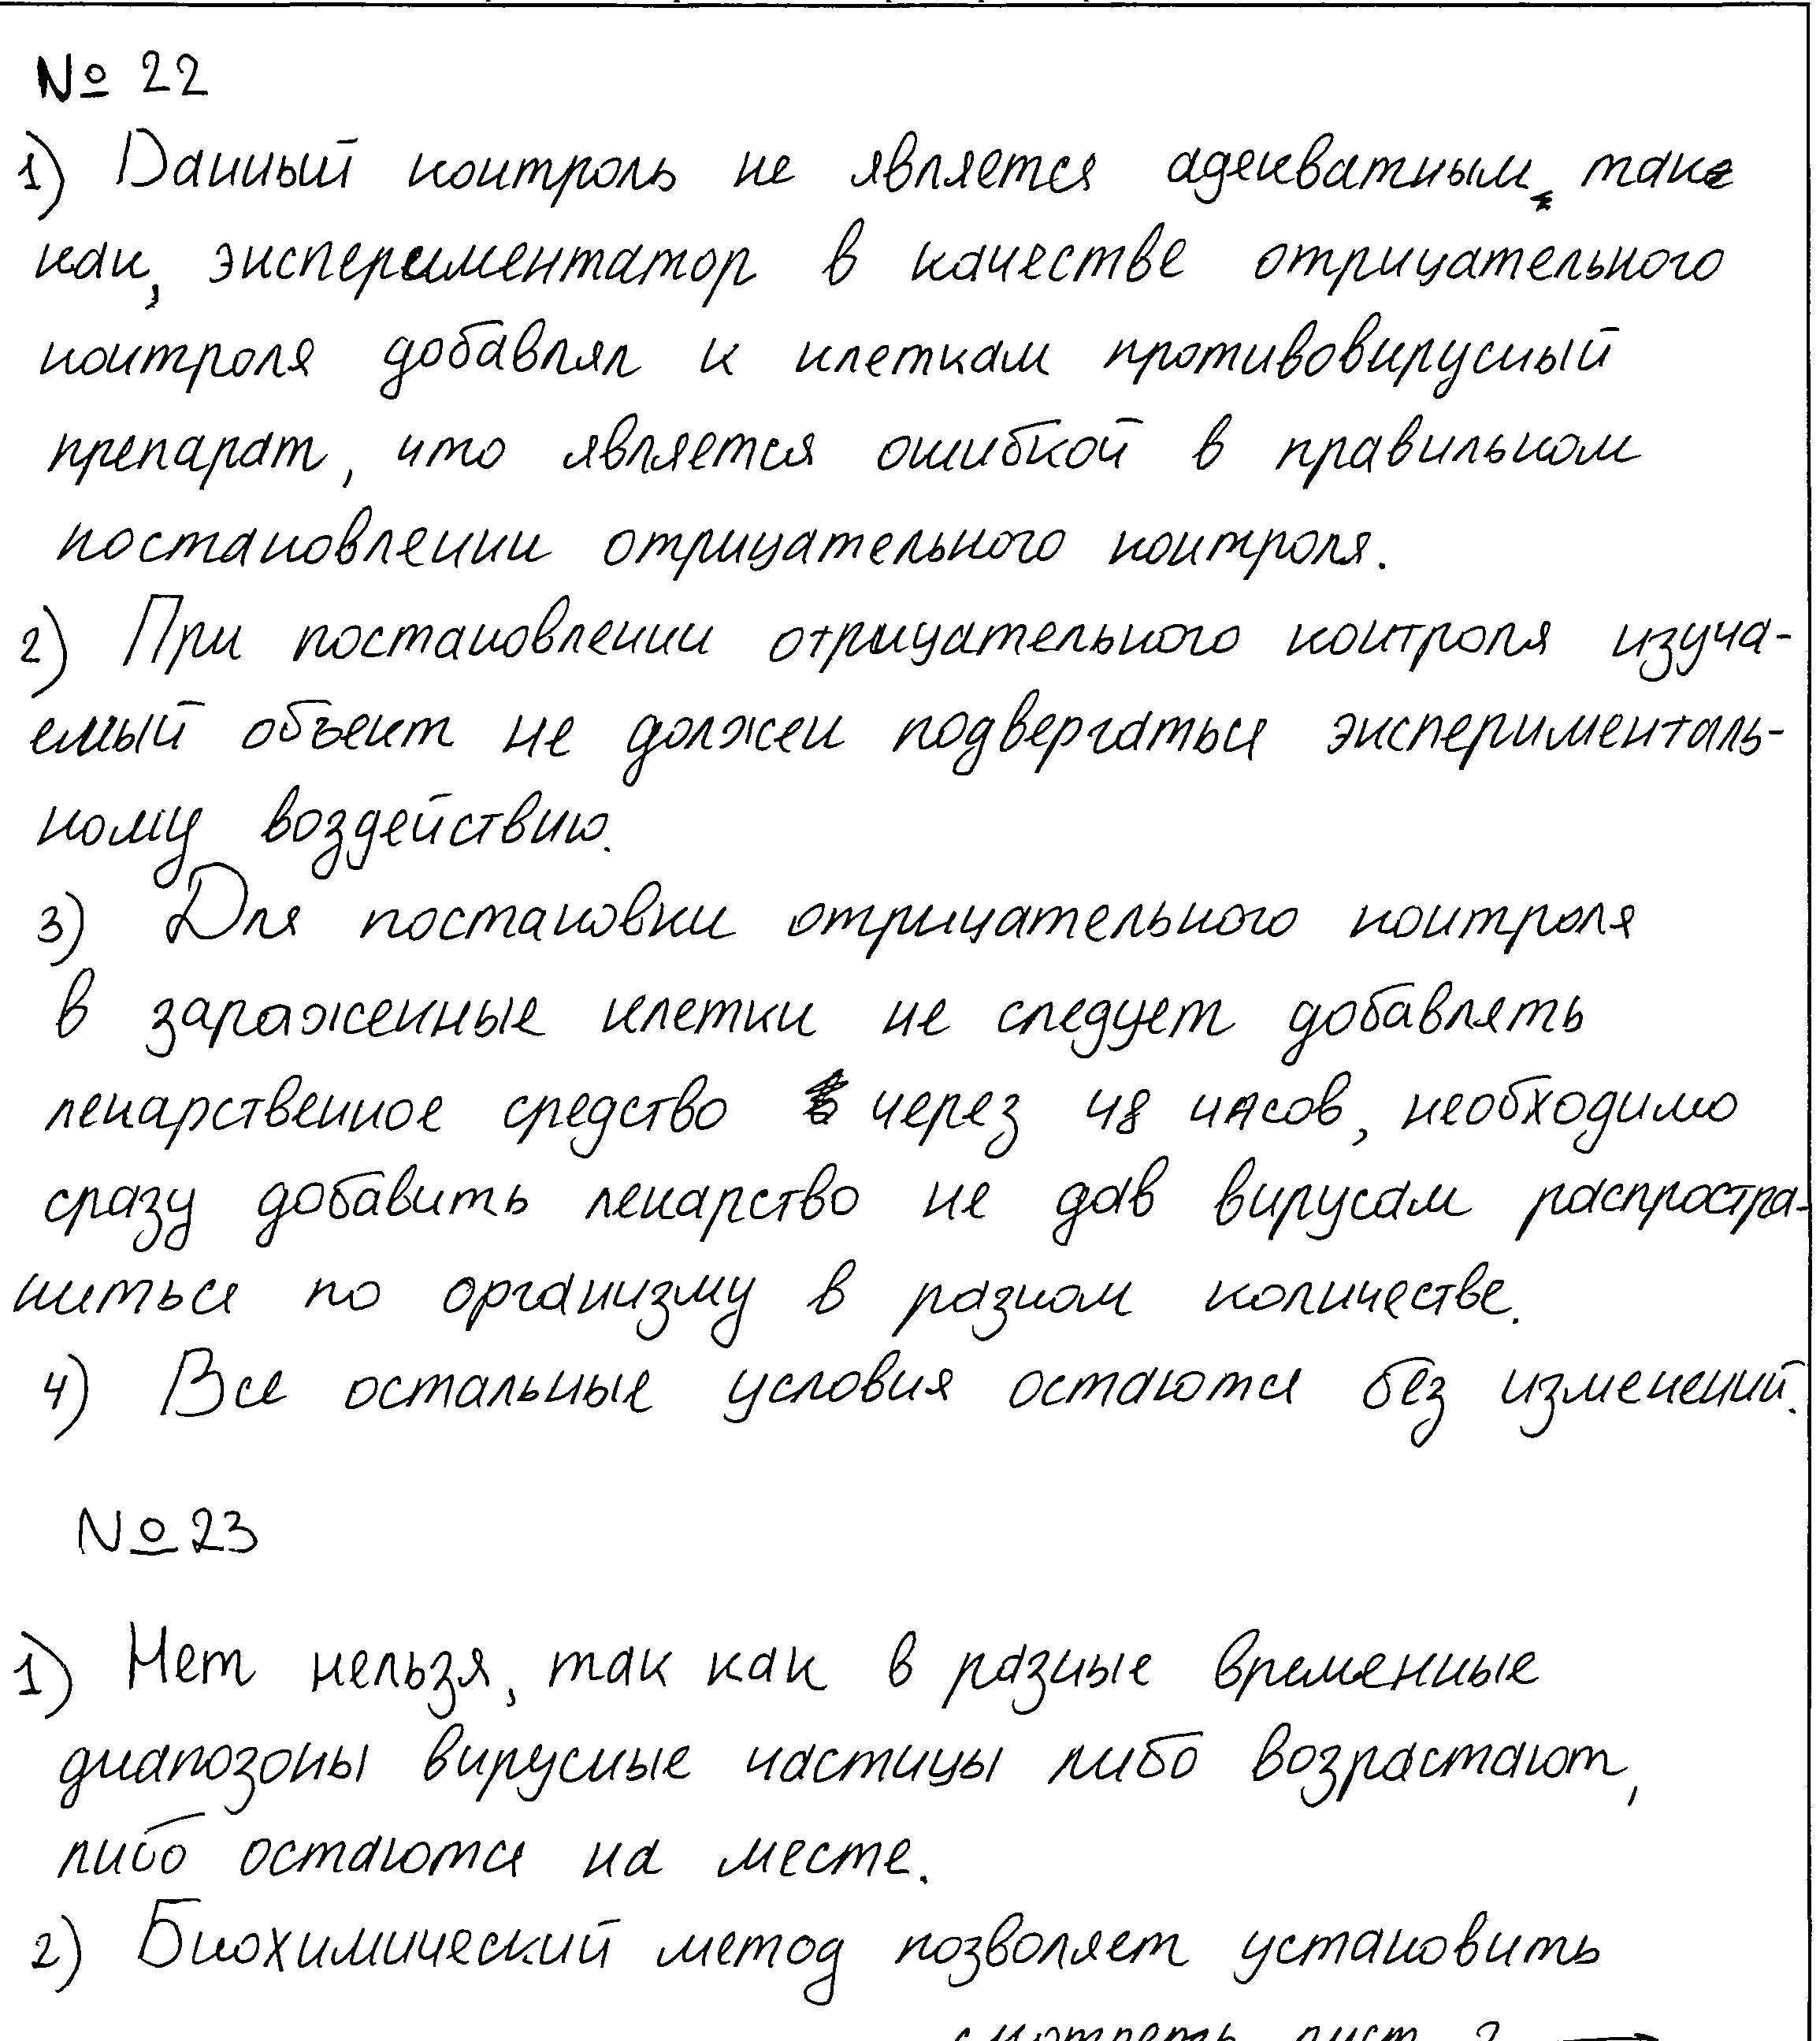 № 22
1) Данный контроль не является адекватным, так
как, экспериментатор в качестве отрицательного
контроля добавлял к клеткам противовирусный
препарат, что является ошибкой в правильном
постановлении отрицательного контроля.
2) При постановлении отрицательного контроля изуча-
емый объект не должен подвергаться эксперименталь-
ному воздействию.
3) Для постановки отрицательного контроля
в зараженные клетки не следует добавлять
лекарственное средство через 48 часов, необходимо
сразу добавить лекарство не дав вирусам распростра-
ниться по организму в разном количестве.
4) Все остальные условия остаются без изменений.
№ 23
1) Нет нельзя, так как в разные временные
диапозоны вирусные частицы либо возрастают,
либо остаются на месте.
2) Биохимический метод позволяет установить
смотреть лист 2